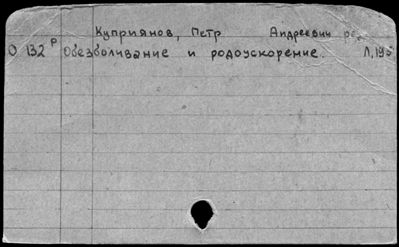 Куприянов, Петр Андреевич ре
О 132 Р Обезболивание и родоускорение. Л, 195